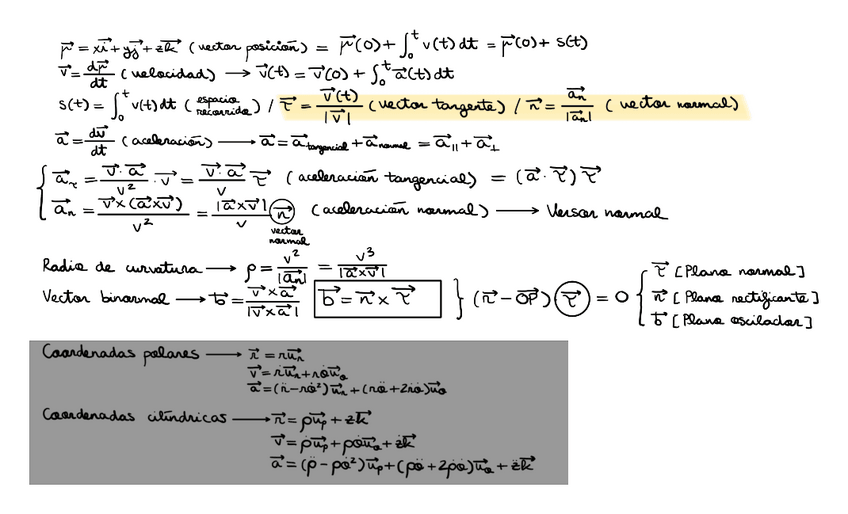 r⃗ = xi⃗ + yj⃗ + zk⃗ (vector posición) = r⃗(0) + ∫₀ᵗ v(t) dt = r⃗(0) + s(t)
v⃗ = dr⃗/dt (velocidad) → v⃗(t) = v⃗(0) + ∫₀ᵗ a⃗(t) dt
s(t) = ∫₀ᵗ v(t) dt (espacio recorrido) / τ⃗ = v⃗(t)/|v⃗| (vector tangente) / n⃗ = a⃗ₙ/|a⃗ₙ| (vector normal)
a⃗ = dv⃗/dt (aceleración) → a⃗ = a⃗ tangencial + a⃗ normal = a⃗∥ + a⃗⊥
a⃗τ = v⃗·a⃗/v² · v⃗ = v⃗·a⃗/v τ⃗ (aceleración tangencial) = (a⃗·τ⃗)τ⃗
a⃗ₙ = v⃗×(a⃗×v⃗)/v² = |a⃗×v⃗|/v n⃗ (aceleración normal) → Versor normal
vector normal
Radio de curvatura → ρ = v²/|a⃗ₙ| = v³/|a⃗×v⃗|
Vector binormal → b⃗ = v⃗×a⃗/|v⃗×a⃗| b⃗ = n⃗ × τ⃗ } (r⃗ − OP⃗) τ⃗ = 0 {
τ⃗ [Plano normal]
n⃗ [Plano rectificante]
b⃗ [Plano oscilador]
Coordenadas polares → r⃗ = ru⃗ᵣ
v⃗ = ṙu⃗ᵣ + rθ̇u⃗θ
a⃗ = (r̈ − rθ̇²)u⃗ᵣ + (rθ̈ + 2ṙθ̇)u⃗θ
Coordenadas cilíndricas → r⃗ = ρu⃗ρ + zk⃗
v⃗ = ρ̇u⃗ρ + ρθ̇u⃗θ + żk⃗
a⃗ = (ρ̈ − ρθ̇²)u⃗ρ + (ρθ̈ + 2ρ̇θ̇)u⃗θ + z̈k⃗